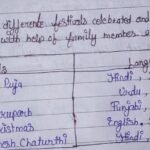 difference festivals celebrated and
with help of family member
Lang
Puja Hindi
Urdu,
Gurupurb Punjabi,
Christmas English.
Ganesh Chaturthi Hindi